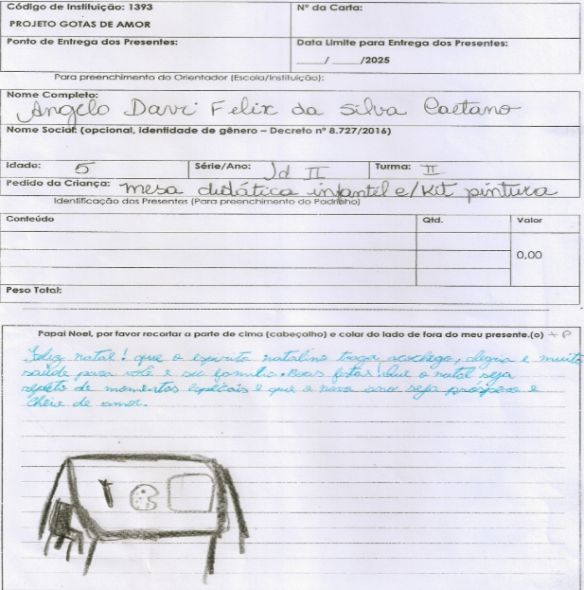 Código de Instituição: 1393
Nº da Carta:
PROJETO GOTAS DE AMOR
Ponto de Entrega dos Presentes:
Data Limite para Entrega dos Presentes:
____/ ____/2025
Para preenchimento do Orientador (Escola/Instituição):
Nome Completo: Angelo Davi Felix da Silva Caetano
Nome Social: (opcional, identidade de gênero – Decreto nº 8.727/2016)
Idade: 5 Série/Ano: Jd II Turma: II
Pedido da Criança: mesa didática infantil e/kit pintura
Identificação dos Presentes (Para preenchimento do Padrinho)
Conteúdo Qtd. Valor
0,00
Peso Total:
Papai Noel, por favor recortar a parte de cima (cabeçalho) e colar do lado de fora do meu presente.(o)
Feliz natal! que o espírito natalino traga aconchego, alegria e muita
saúde para você e sua família. Boas festas! Que o natal seja
repleto de momentos especiais e que o novo ano seja próspero e
cheio de amor.